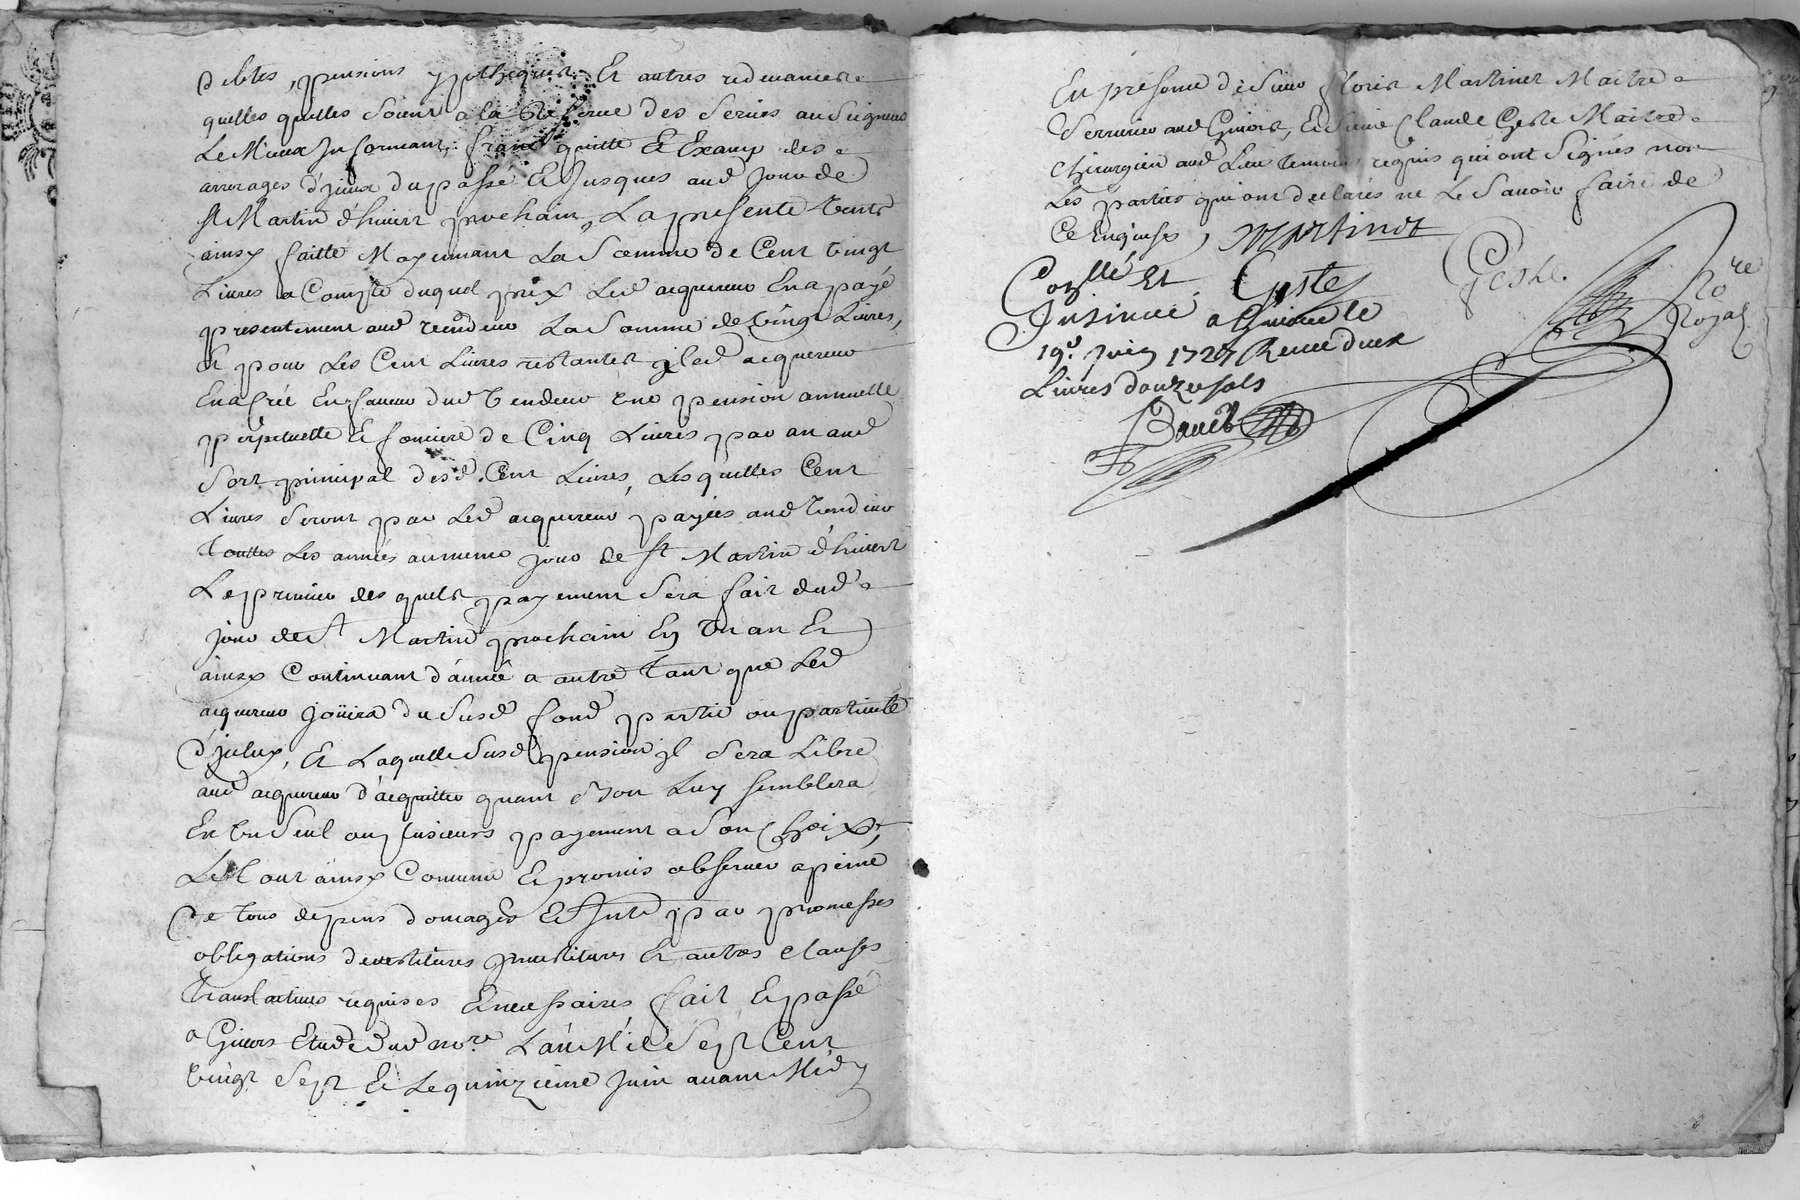 debtes, pensions ypotheques Et autres redevances
quelles quelles soient a la Reserve des Servis au Seigneur
Le Mieux Informant, franc quitte Et Examp des
arrerages d'jceux du passé Et Jusques aud Jour de
st Martin d'hivert prochain, La presente Vente
ainsy faitte Moyennant La Somme de Cent Vingt
Livres a Compte duquel prix Led acquereur En a payé
presentement aud vendeur La Somme de Vingt Livres,
Et pour Les Cent Livres restantes jled acquereur
En a Créé En faveur dud Vendeur Une pension annuelle
perpetuelle Et fonciere de Cinq Livres par an aud
Sort principal desd. Cent Livres, Lesquelles Cent
Livres Seront par Led acquereur payées aud Vendeur
Touttes Les années au meme jour de st Martin d'hivert
Le premier des quels payement Sera fait dud
jour de st Martin prochain En Un an Et
ainsy Continuant d'année a autre Tant que Led
acquereur joüira du Susd fond partie ou particule
d'jceluy, Et Laquelle Susd pension jl Sera Libre
aud acquereur d'acquitter quant Luy semblera
En Un Seul ou plusieurs payement a Son Choix,
Le Tout ainsy Convenu Et promis observer a peine
De Tous depens domages Et Jnts par promesses
obligations devestitures jnvestitures Et autres Clauses
Translatives requises Et necessaires, fait Et passé
a Givors Etude dud nore. L'an Mil Sept Cent
Vingt Sept Et Le quinzieme Juin avant Midy
En presence de Sieur Floris Martinet Maitre
Serrurier aud Givors, Et Sieur Claude Geste Maitre
Chirurgien aud Lieu temoins requis qui ont Signés non
Les parties qui ont declarés ne Le Savoir faire de
Ce Enquises, Martinet
Conllé Et Geste Geste. Nore
Insinué a Givors le Royal
19e. Juin 1727 Receu deux
Livres douze sols